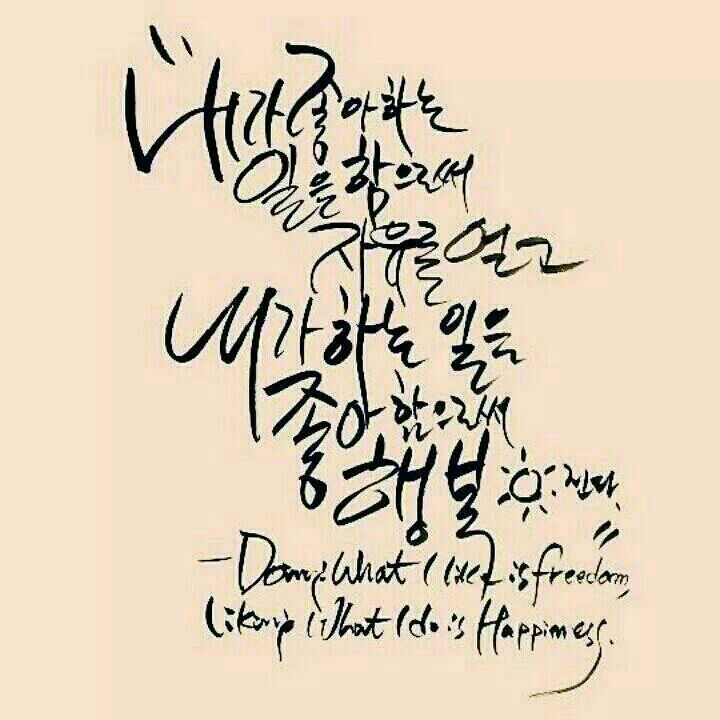 "내가 좋아하는
일을 함으로써
자유를 얻고
내가 하는 일을
좋아함으로써
행복☼진다."
-Doing What I like is freedom,
Liking What I do is Happiness.